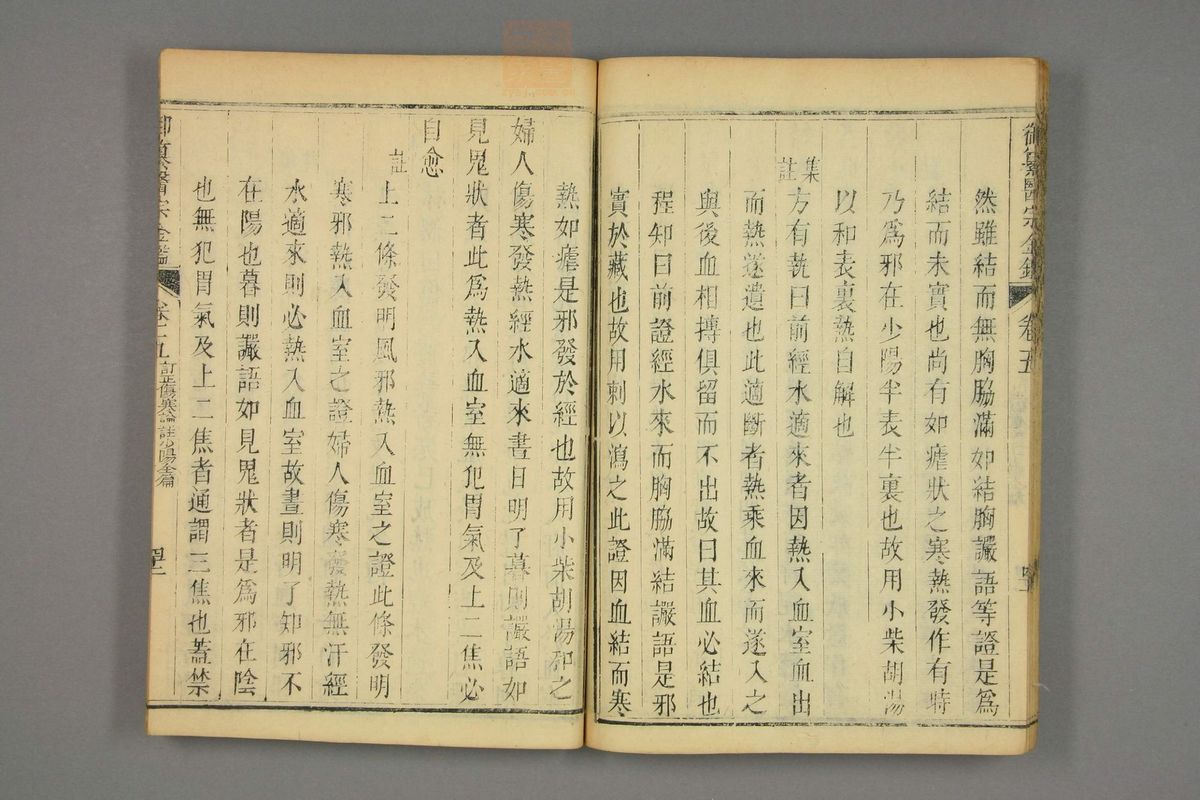 御纂醫宗金鑑 卷五
然雖結而無胸脇滿如結胸讝語等證是爲
結而未實也尚有如瘧狀之寒熱發作有時
乃爲邪在少陽半表半裏也故用小柴胡湯
以和表裏熱自解也
集註
方有執曰前經水適來者因熱入血室血出
而熱遂遺也此適斷者熱乘血來而遂入之
與後血相摶俱留而不出故曰其血必結也
程知曰前證經水來而胸脇滿結讝語是邪
實於藏也故用刺以瀉之此證因血結而寒
熱如瘧是邪發於經也故用小柴胡湯和之
婦人傷寒發熱經水適來晝日明了暮則讝語如
見鬼狀者此爲熱入血室無犯胃氣及上二焦必
自愈
註
上二條發明風邪熱入血室之證此條發明
寒邪熱入血室之證婦人傷寒發熱無汗經
水適來則必熱入血室故晝則明了知邪不
在陽也暮則讝語如見鬼狀者是爲邪在陰
也無犯胃氣及上二焦者通謂三焦也蓋禁
御纂醫宗金鑑 卷五 訂正傷寒論註少陽全篇